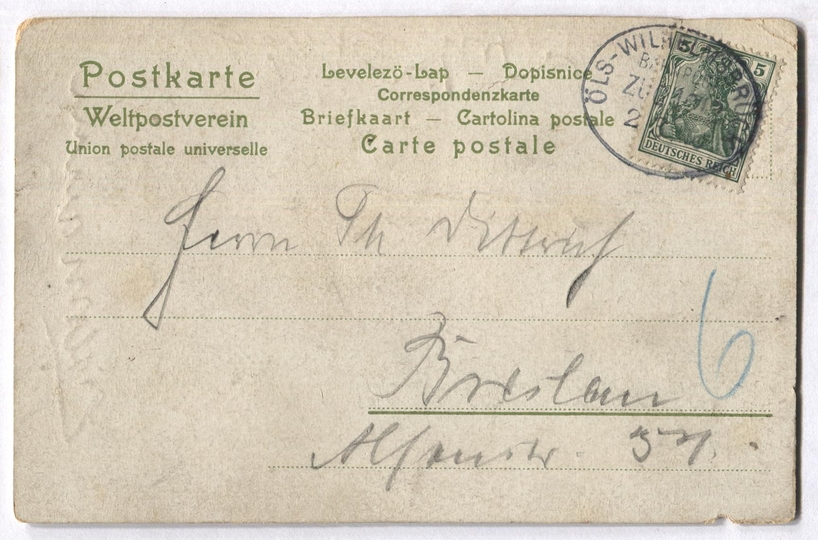 Postkarte
Weltpostverein
Union postale universelle
Levelező-Lap — Dopisnice
Correspondenzkarte
Briefkaart — Cartolina postale
Carte postale
ÖLS-WILHELMSBRÜCK
BAHNPOST
ZUG
2
5 5
DEUTSCHES REICH
Herrn Th Dittrich
6
Breslau